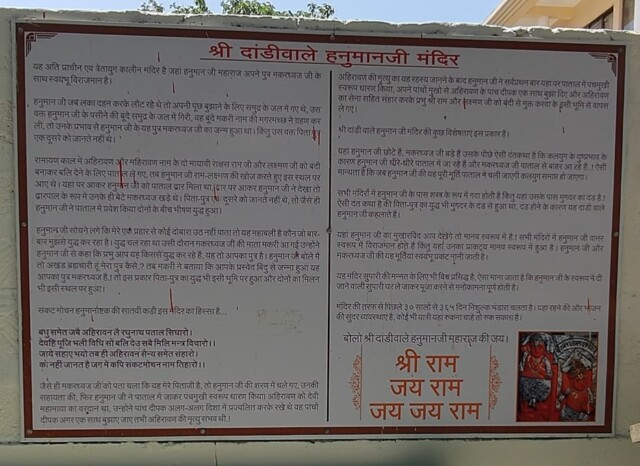 श्री दांडीवाले हनुमानजी मंदिर
यह अति प्राचीन एवं त्रेतायुग कालीन मंदिर है जहां हनुमान जी महाराज अपने पुत्र मकरध्वज जी के
साथ स्वयंभू विराजमान है।
हनुमान जी जब लंका दहन करके लौट रहे थे तो अपनी पूंछ बुझाने के लिए समुद्र के जल में गए थे, उस
वक्त हनुमान जी के पसीने की बूंदे समुद्र के जल में गिरी, वह बूंदे मकरी नाम की मगरमच्छ ने ग्रहण कर
ली, तो उनके प्रभाव से हनुमान जी के यह पुत्र मकरध्वज जी का जन्म हुआ था। किंतु उस वक्त पिता
एक दूसरे को जानते नहीं थे।
रामायण काल में अहिरावण और महिरावण नाम के दो मायावी राक्षस राम जी और लक्ष्मण जी को बंदी
बनाकर बलि देने के लिए पाताल ले गए, तब हनुमान जी राम-लक्ष्मण की खोज करते हुए इस स्थान पर
आए थे। यहां पर आकर हनुमान जी को पाताल द्वार मिला था, द्वार पर आकर हनुमान जी ने देखा तो
द्वारपाल के रूप में उनके ही बेटे मकरध्वज खड़े थे। पिता-पुत्र एक दूसरे को जानते नहीं थे, तो जैसे ही
हनुमान जी ने पाताल में प्रवेश किया दोनों के बीच भीषण युद्ध हुआ।
हनुमान जी सोचने लगे कि मेरे एक प्रहार से कोई दोबारा उठ नहीं पाता तो यह महाबली है कौन जो बार-
बार मुझसे युद्ध कर रहा है। युद्ध चल रहा था उसी दौरान मकरध्वज जी की माता मकरी आ गई उन्होंने
हनुमान जी से कहा कि प्रभु आप यह किससे युद्ध कर रहे हैं, यह तो आपका पुत्र है। हनुमान जी बोले मैं
तो अखंड ब्रह्मचारी हूं मेरा पुत्र कैसे.? तब मकरी ने बताया कि आपके प्रस्वेद बिंदु से जन्मा हुआ यह
आपका पुत्र मकरध्वज है.! तो इस प्रकार पिता-पुत्र का युद्ध भी इसी भूमि पर हुआ और दोनों का मिलन
भी इसी स्थान पर हुआ।
संकट मोचन हनुमानाष्टक की सातवी कड़ी इस मंदिर का हिस्सा है...
बंधु समेत जबै अहिरावन लै रघुनाथ पताल सिधारो।
देवहिं पूजि भली विधि सों बलि देउ सबै मिलि मन्त्र विचारो।।
जाये सहाए भयो तब ही अहिरावन सैन्य समेत संहारो।
को नहीं जानत है जग में कपि संकटमोचन नाम तिहारो।।
जैसे ही मकरध्वज जी को पता चला कि यह मेरे पिताजी है, तो हनुमान जी की शरण में चले गए, उनकी
सहायता की, फिर हनुमान जी ने पाताल में जाकर पंचमुखी स्वरूप धारण किया। अहिरावण को देवी
महामाया का वरदान था, उन्होंने पांच दीपक अलग-अलग दिशा में प्रज्वलित करके रखे थे वह पांचो
दीपक अगर एक साथ बुझाए जाए तभी अहिरावण की मृत्यु संभव थी।
अहिरावण की मृत्यु का यह रहस्य जानने के बाद हनुमान जी ने सर्वप्रथम बार यहां पर पाताल में पंचमुखी
स्वरूप धारण किया, अपने पांचो मुखों से अहिरावण के पांच दीपक एक साथ बुझा दिए और अहिरावण
का सेना सहित संहार करके प्रभु श्री राम और लक्ष्मण जी को बंदी से मुक्त करवा के इसी भूमि से वापस
ले गए।
श्री दांडी वाले हनुमान जी मंदिर की कुछ विशेषताएं इस प्रकार है।
यहां हनुमान जी छोटे हैं, मकरध्वज जी बड़े हैं उसके पीछे ऐसी दंतकथा है कि कलयुग के दुष्प्रभाव के
कारण हनुमान जी धीरे-धीरे पाताल में जा रहे हैं और मकरध्वज जी पाताल से बाहर आ रहे हैं.! ऐसी
मान्यता है कि जब हनुमान जी की यह पूरी मूर्ति पाताल में चली जाएगी कलयुग समाप्त हो जाएगा।
सभी मंदिरों में हनुमान जी के पास शस्त्र के रूप में गदा होती है किंतु यहां उसके पास मुगदर का दंड है.!
ऐसी दंत कथा है की पिता-पुत्र का युद्ध भी मुगदर के दंड से हुआ था, दंड होने के कारण यह दांडी वाले
हनुमान जी कहलाते हैं।
यहां हनुमान जी का मुखारविंद आप देखेंगे तो मानव स्वरूप में है.! सभी मंदिरों में हनुमान जी वानर
स्वरूप में विराजमान होते हैं किंतु यहां उनका प्राकट्य मानव स्वरूप में हुआ है। हनुमान जी और
मकरध्वज जी की यह मूर्तियां स्वयंभू प्रकट मानी जाती है।
यह मंदिर सुपारी की मन्नत के लिए भी विश्व प्रसिद्ध है, ऐसा माना जाता है कि हनुमान जी के स्वरूप में दी
जाने वाली सुपारी घर पर ले जाकर पूजा करने से मनोकामना पूर्ण होती है।
मंदिर की तरफ से पिछले ३० सालों से ३६५ दिन निशुल्क भंडारा चलता है। यहां रहने की और भोजन
की सुंदर व्यवस्थाएं है, कोई भी यात्री यहां रुकना चाहे तो रुक सकता है।
बोलो श्री दांडीवाले हनुमानजी महाराज की जय।
श्री राम
जय राम
जय जय राम